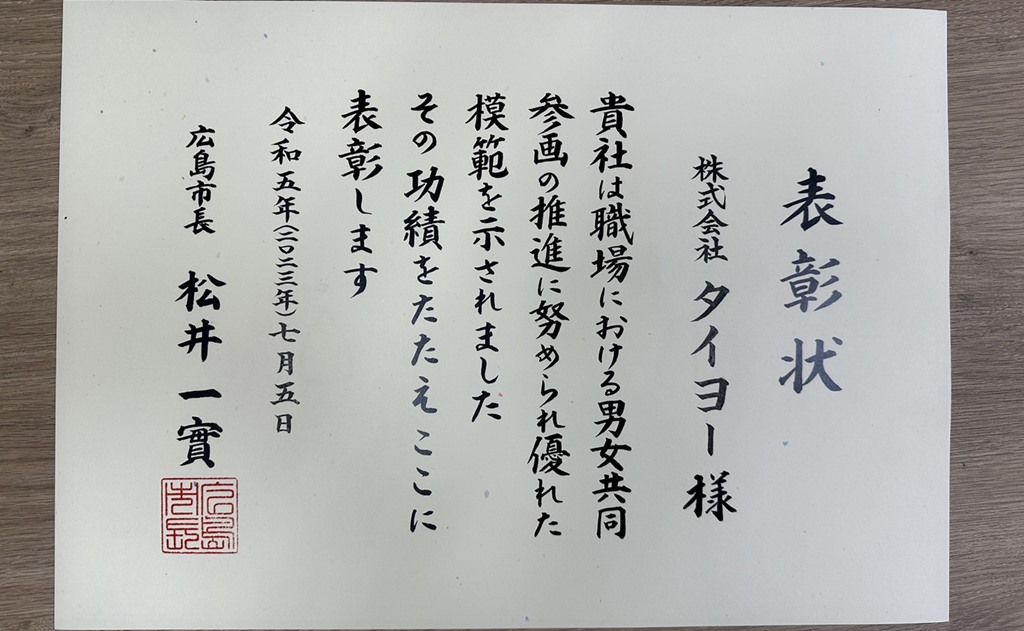 表彰状
株式会社 タイヨー 様
貴社は職場における男女共同
参画の推進に努められ優れた
模範を示されました
その功績をたたえここに
表彰します
令和五年(二〇二三年)七月五日
広島市長 松井一實
広島市長